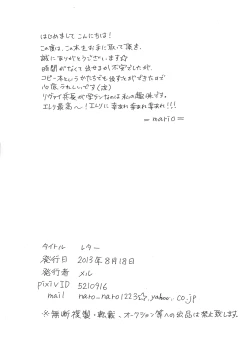 はじめまして こんにちは!
この度は、この本をお手に取って頂き、
誠にありがとうございます☆
時間がなくて出せるか不安でしたが、
コピー本というかたちでも出すことができたので
心底うれしいです(涙)
リヴァイ兵長が学ランなのは私の趣味です。
エレリ最高〜!エレリに幸あれ幸あれ幸あれ!!!
=mario=
タイトル レター
発行日 2013年8月18日
発行者 メル
pixiv ID 5210916
mail naro_naro1223☆yahoo.co.jp
※無断複製・転載、オークション等への出品は禁止致します。